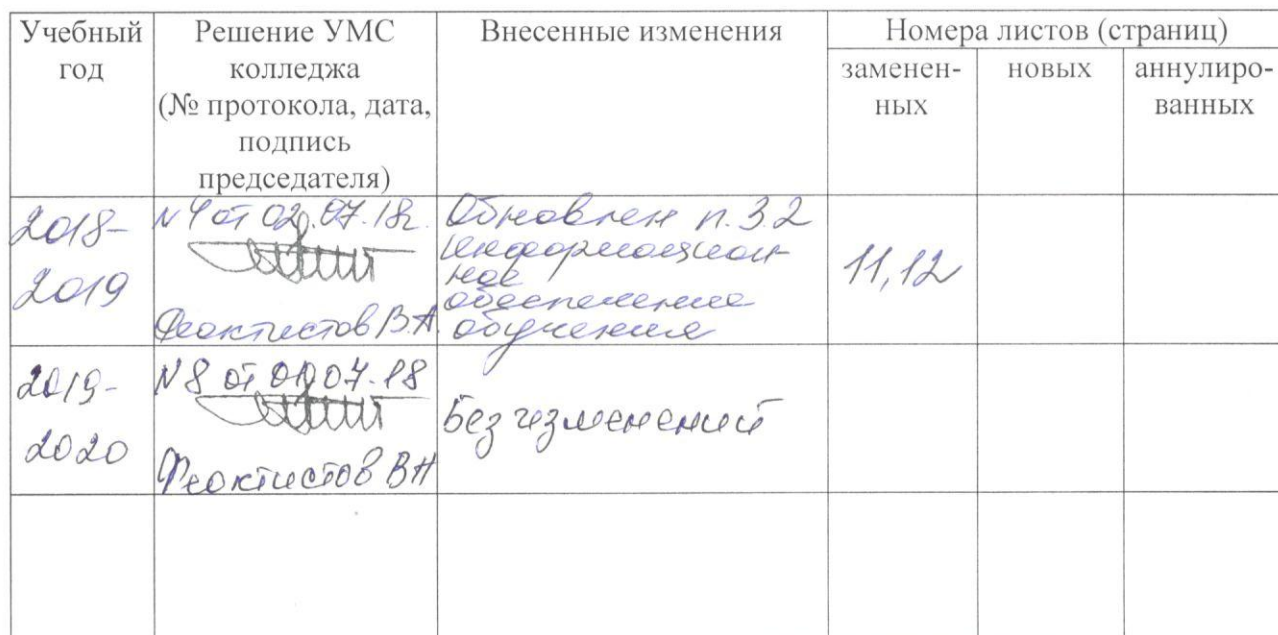 Учебный год
Решение УМС колледжа (№ протокола, дата, подпись председателя)
Внесенные изменения
Номера листов (страниц)
заменен-
ных
новых
аннулиро-
ванных
2018-
2019
N 4 от 02.07.18г.
Феоктистов В.А.
Обновлен п. 3.2
Информацион-
ное
обеспечение
обучения
11,12
2019-
2020
N 8 от 01.07.18
Феоктистов ВН
Без изменений